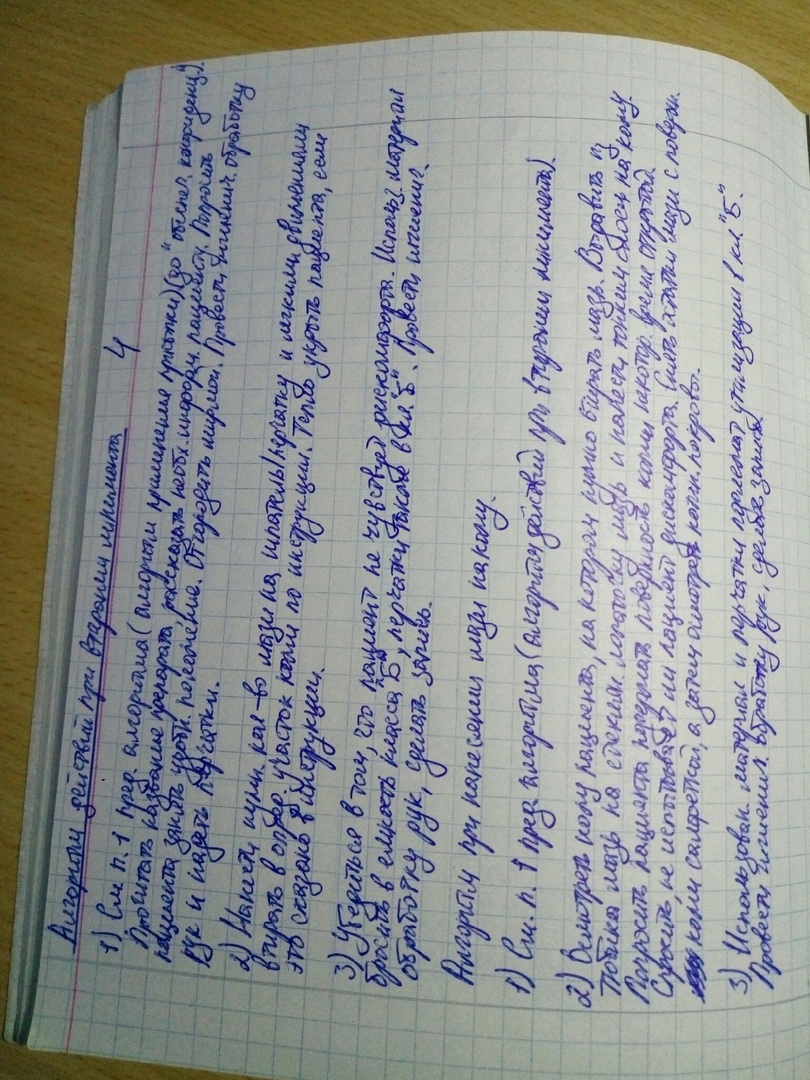 Алгоритм действий при втирании линимента 4
1) См п.1 пред алгоритма (алгоритм применение присыпки) (до "обеспеч. конфиденц.").
Прочитать название препарата, рассказать необх. информац. пациенту. Попросить
пациента занять удобн. положение. Отгородить ширмой. Провести гигиенич. обработку
рук и надеть перчатки.
2) Нанести нужн. кол-во мази на шпатель/перчатку и легкими движениями
втирать в опред. участок кожи по инструкции. Тепло укрыть пациента, если
это сказано в инструкции.
3) Убедиться в том, что пациент не чувствует дискомфорта. Использ. материал
бросить в емкость класса Б, перчатки также в кл "Б". Провести гигиенич.
обработку рук, сделать запись.
Алгоритм при нанесении мази на кожу.
1) См. п. 1 пред алгоритма (алгоритм действий при втирании линимента)
2) Осмотреть кожу пациента, на которую нужно втирать мазь. Выдавить из
тюбика мазь на стекл. лопаточку мазь и нанести тонким слоем на кожу.
Попросить пациента подержать поверхность кожи некотор. время открытой.
Спросить, не испытывает ли пациент дискомфорта. Снять остатки мази с поверхн.
кожи салфеткой, а затем осмотреть кожн. покровы.
3) Использован. материал и перчатки подлежат утилизации в кл. "Б".
Провести гигиенич. обработку рук, сделать запись